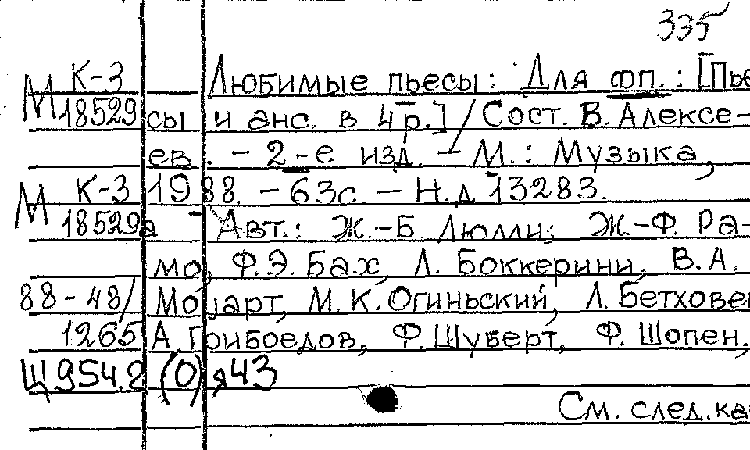 335
К-3 Любимые пьесы: Для фп.: [Пье
М 18529 сы и анс. в 4 р.] / Сост. В. Алексе-
ев. - 2-е изд. - М.: Музыка,
М К-3 1988. - 63с. - Н.д. 13283.
18529а Авт.: Ж.-Б. Люлли; Ж.-Ф. Ра-
мо, Ф.Э. Бах, Л. Боккерини, В.А.
88-48/ Моцарт, М.К. Огиньский, Л. Бетховен
1265 А. Грибоедов, Ф. Шуберт, Ф. Шопен,
Щ954.2(0)я43
См. след. ка